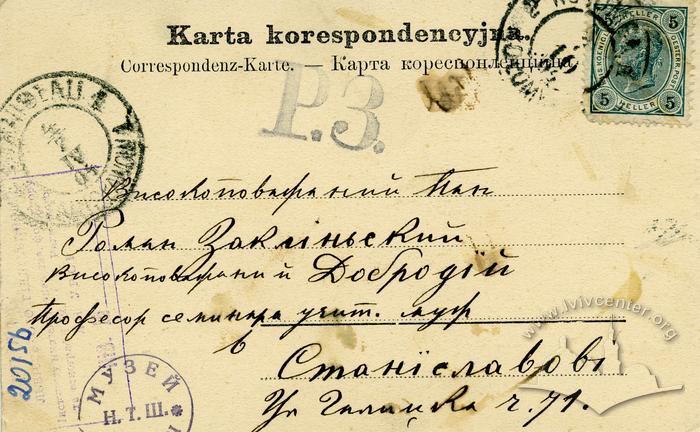 Karta korespondencyjna.
Correspondenz-Karte. — Карта кореспонденційна
5 HELLER 5
5 HELLER 5
P.3.
Високоповажаний Пан
Роман Заклиньский
Високоповажаний Добродїй
Професор семинара учит. муж
в Станїславові
Ул Галицка ч. 71.
20156
МУЗЕЙ
Н.Т.Ш.
www.lvivcenter.org